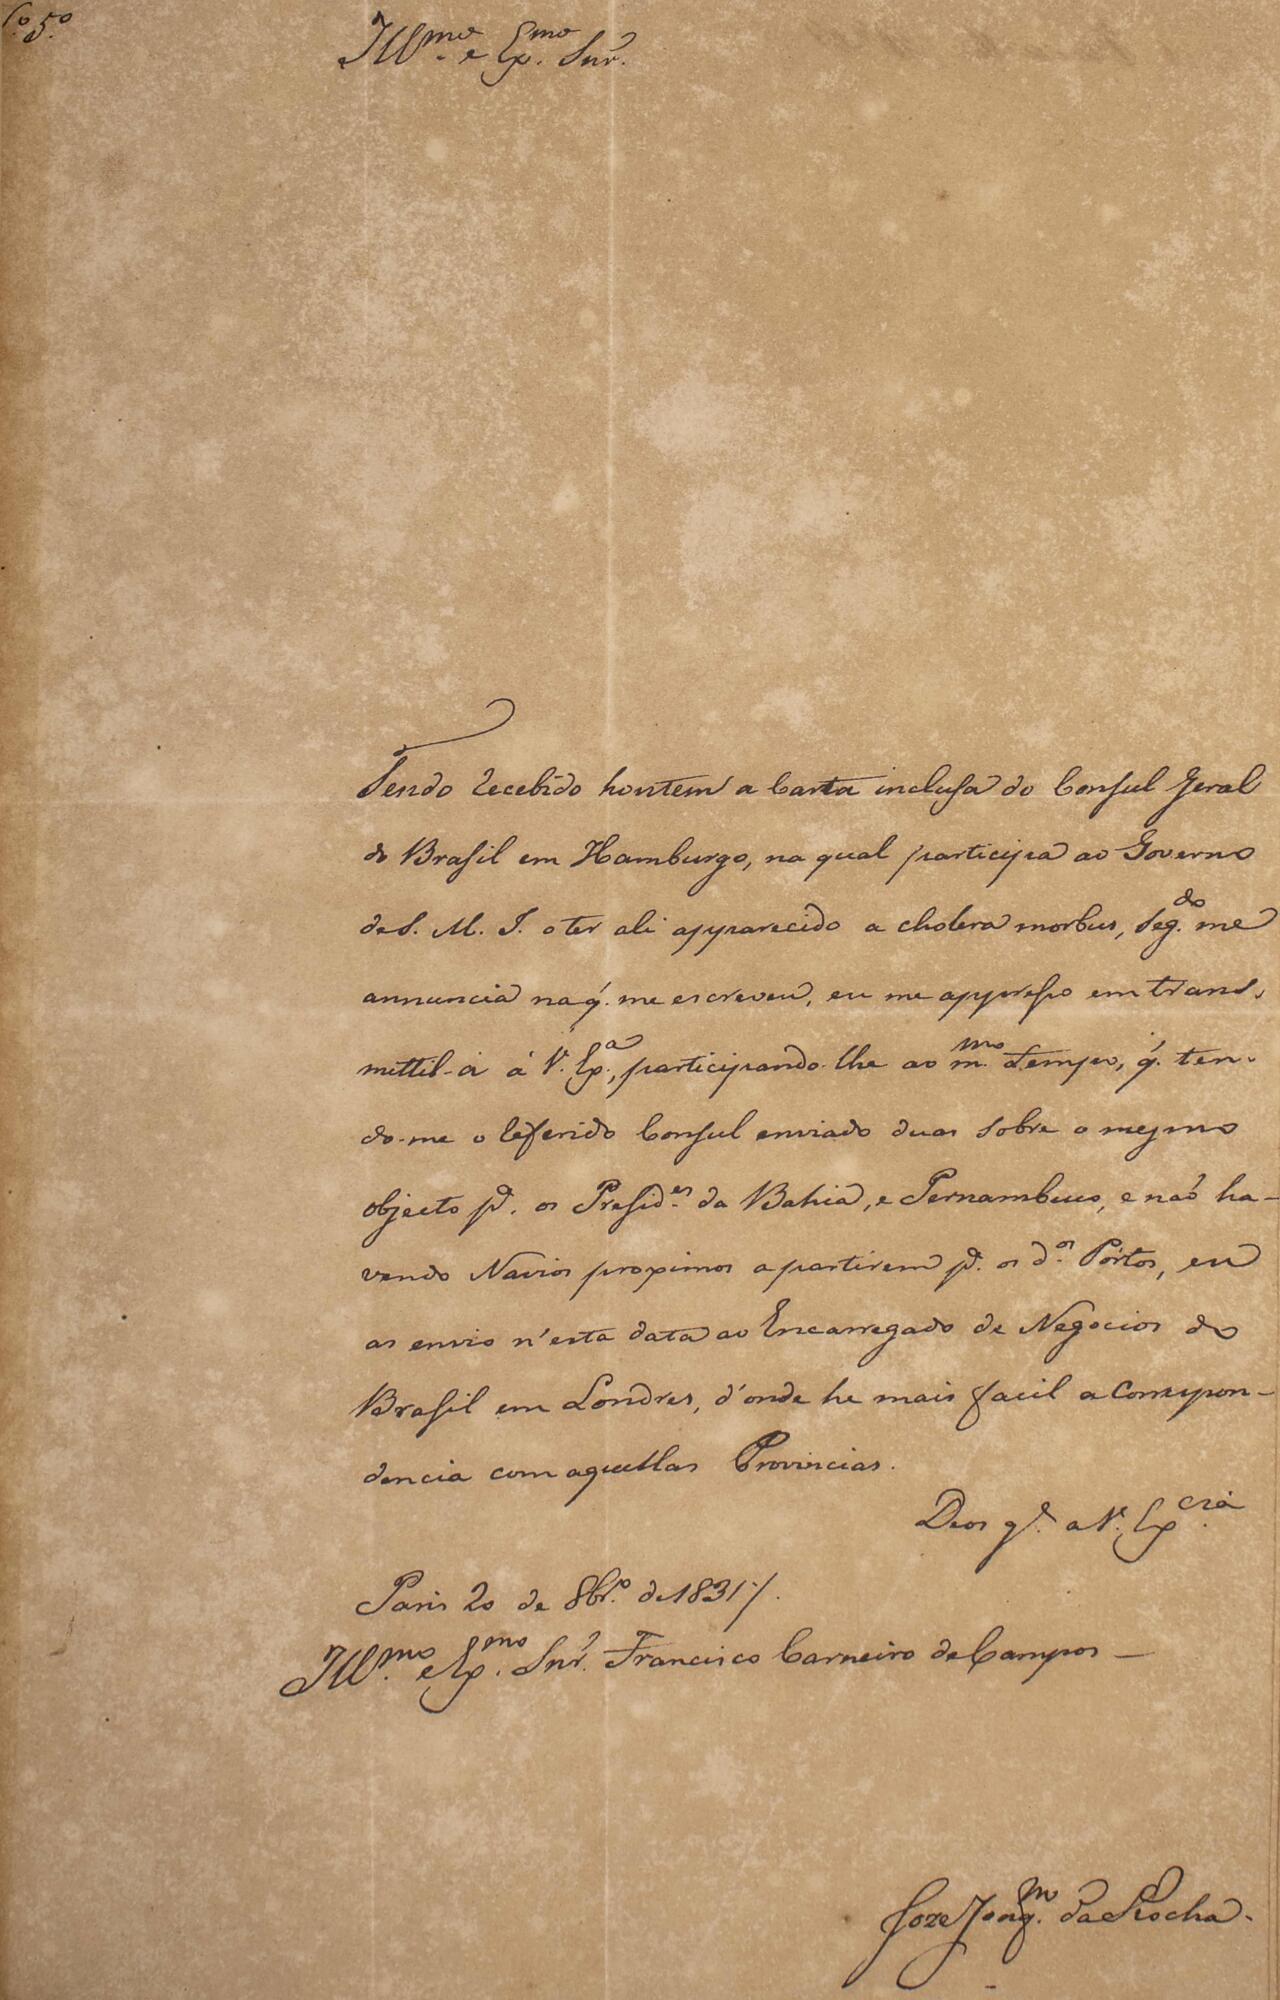 5º
Illmo. e Exmo. Snr.
Tendo recebido hontem a Carta inclusa do Consul Geral
do Brasil em Hamburgo, na qual participa ao Governo
de S. M. I. o ter ali apparecido a cholera morbus, segdo. me
annuncia na q́. me escreveu, eu me appresso em trans-
mettil-a á V. Exa., participando-lhe ao mmo. tempo, q́. ten-
do-me o referido Consul enviado duas sobre o mesmo
objecto pa. os Presides. da Bahia, e Pernambuco, e naõ ha-
vendo Navios proximos a partirem pa. os dos. Pórtos, eu
as envio n'esta data ao Encarregado de Negocios do
Brasil em Londres, d'onde he mais facil a Correspon-
dencia com aquellas Provincias.
Deos ge. a V. Excia.
Paris 20 de 8bro. de 1831 /.
Illmo. e Exmo. Snr. Francisco Carneiro de Campos —
Joze Joaqm. da Rocha.